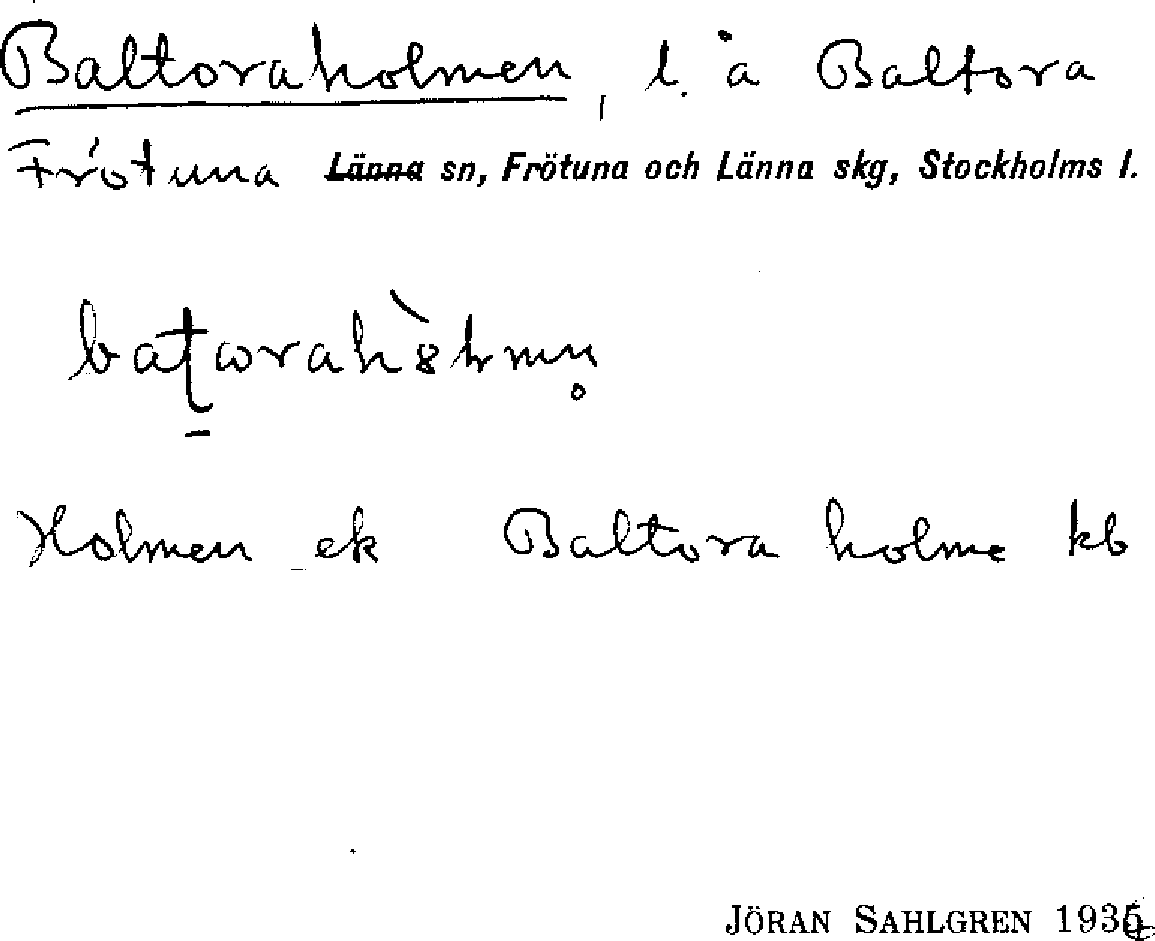 Baltoraholmen, l. å Baltora
Frötuna Länna sn, Frötuna och Länna skg, Stockholms l.
Holmen ek Baltora holme kb
JÖRAN SAHLGREN 193